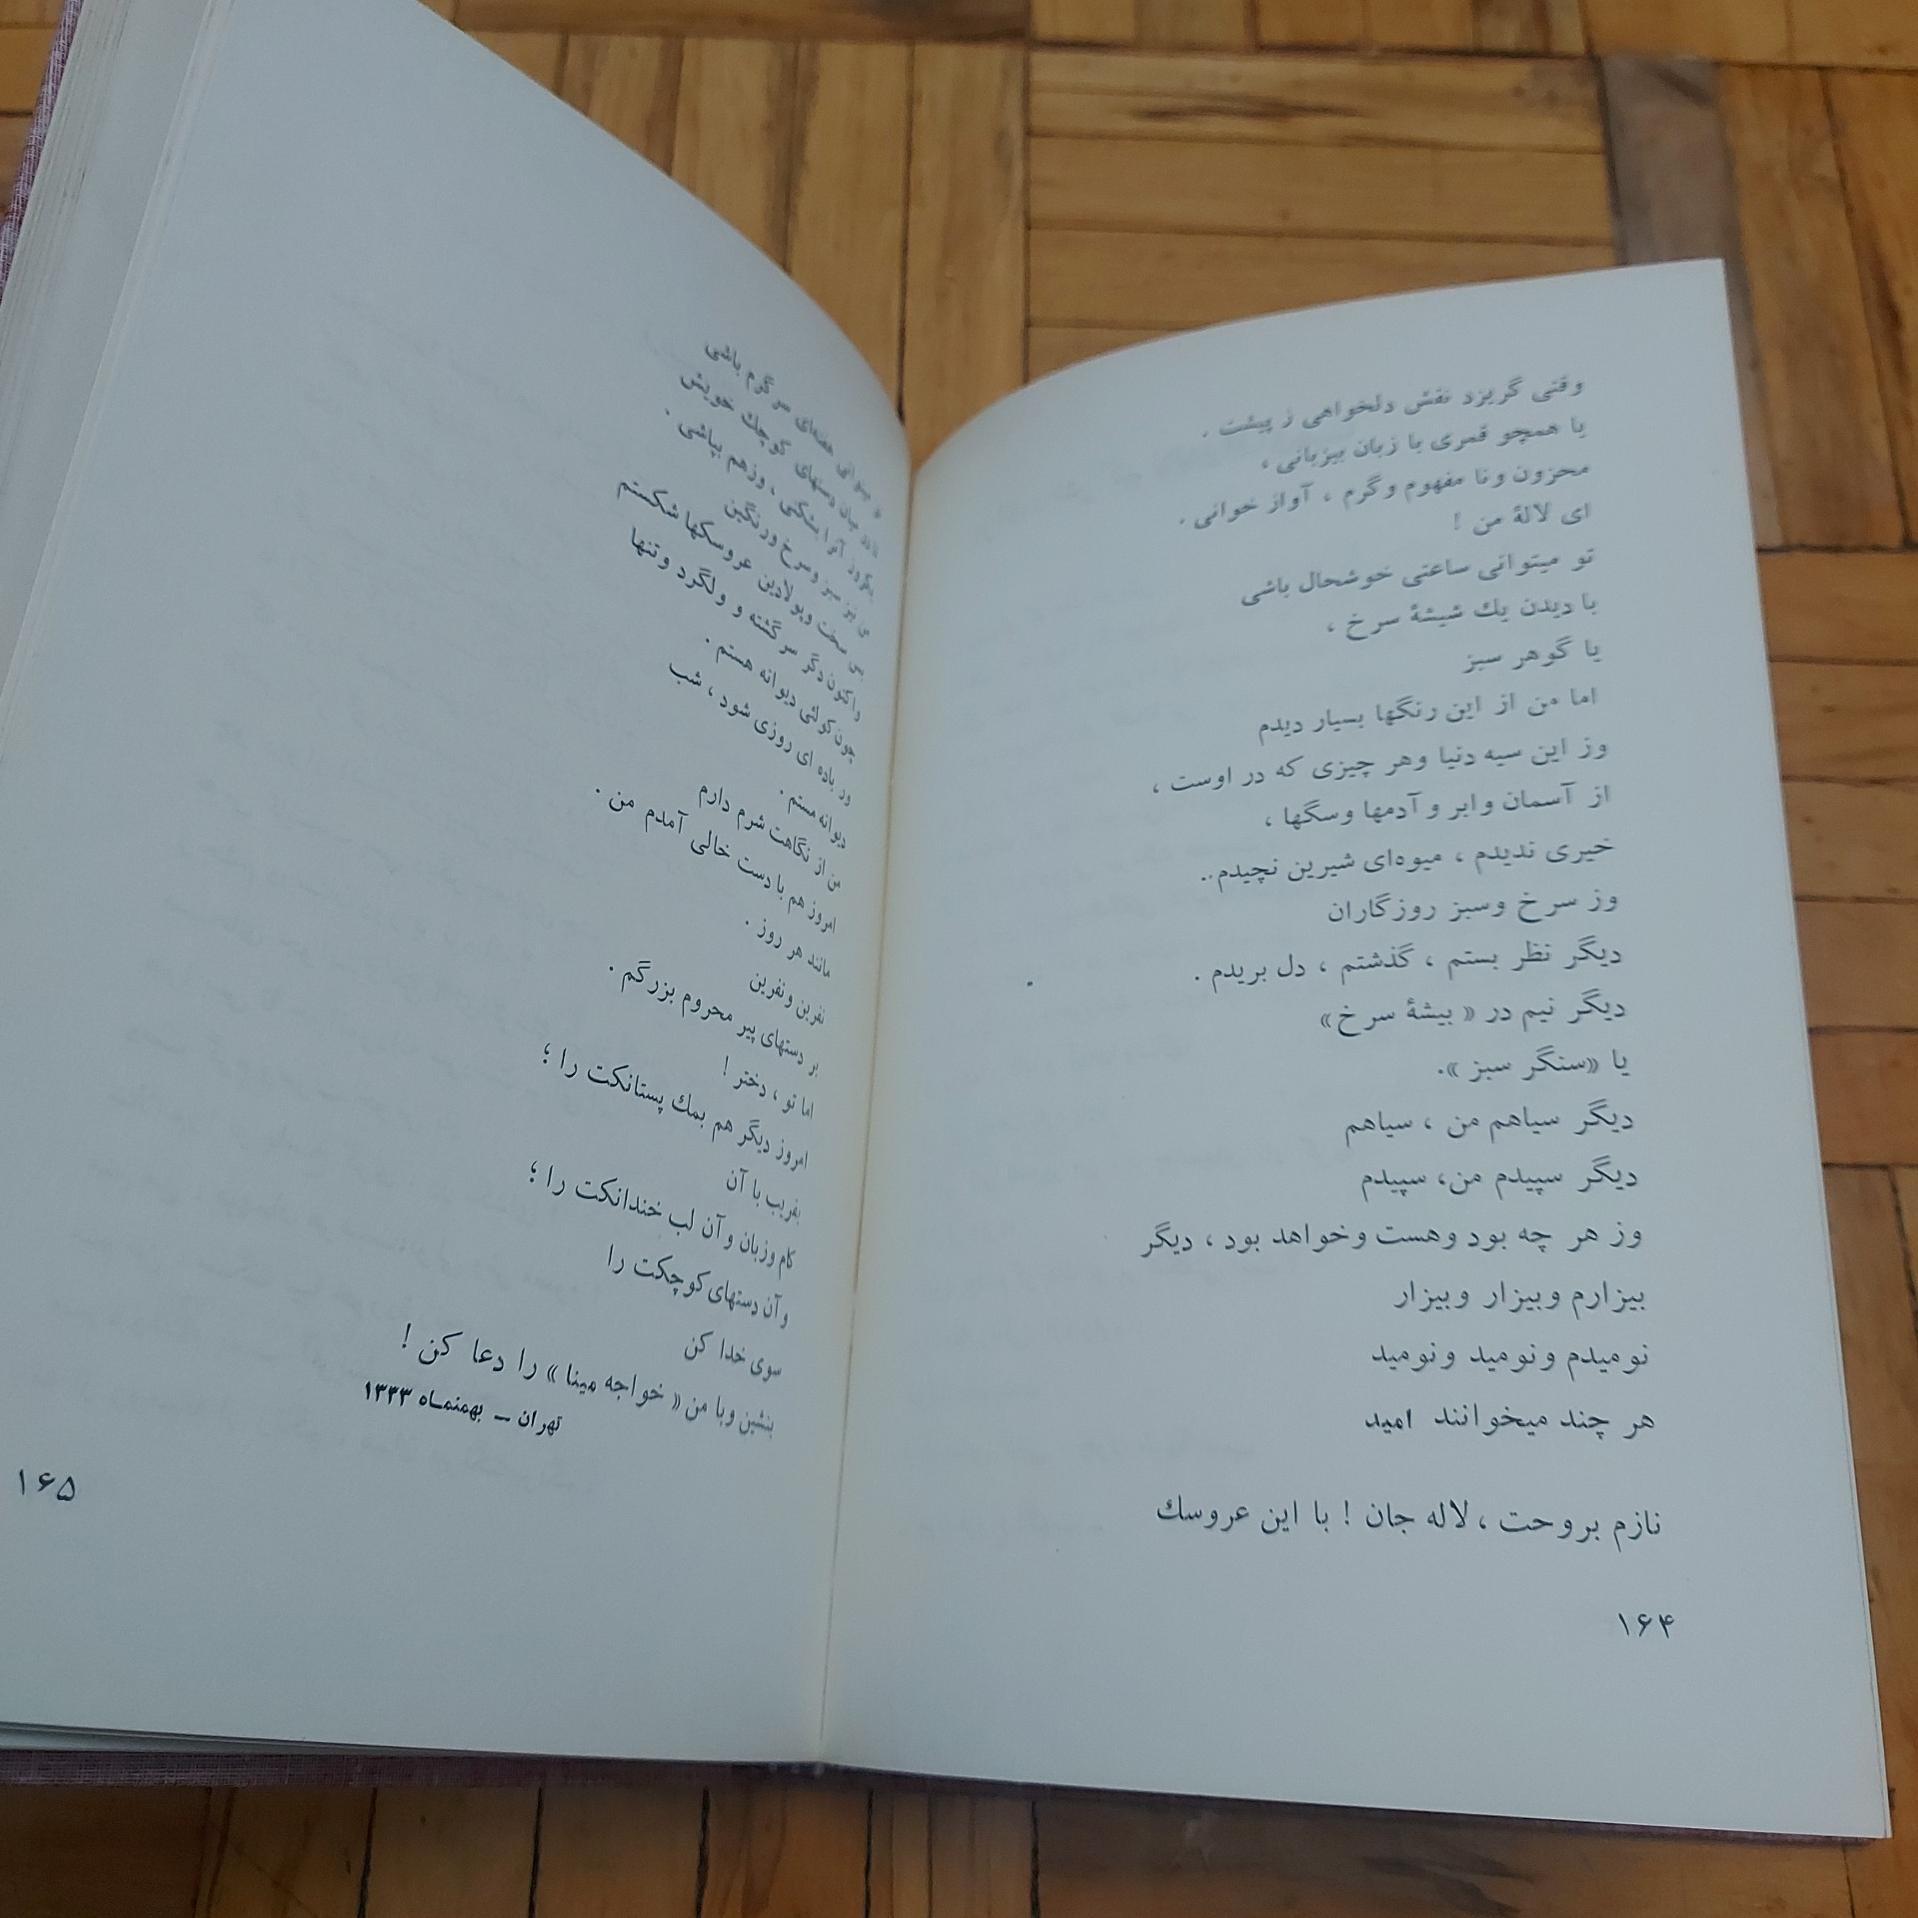 وقتی گریزد نقش دلخواهی ز پیشت .
یا همچو قمری با زبان بیزبانی ،
محزون ونا مفهوم وگرم ، آواز خوانی .
ای لالهٔ من !
تو میتوانی ساعتی خوشحال باشی
با دیدن یك شیشهٔ سرخ ،
یا گوهر سبز
اما من از این رنگها بسیار دیدم
وز این سیه دنیا وهر چیزی که در اوست ،
از آسمان وابر و آدمها وسگها ،
خیری ندیدم ، میوه‌ای شیرین نچیدم .
وز سرخ وسبز روزگاران
دیگر نظر بستم ، گذشتم ، دل بریدم .
دیگر نیم در « بیشهٔ سرخ»
یا «سنگر سبز ».
دیگر سیاهم من ، سیاهم
دیگر سپیدم من، سپیدم
وز هر چه بود وهست وخواهد بود ، دیگر
بیزارم وبیزار وبیزار
نومیدم ونومید ونومید
هر چند میخوانند امید
نازم بروحت ، لاله جان ! با این عروسك
۱۶۴
هفته‌ای سر گرم باشی
دستهای کوچك خویش
آنرا بشکنی ، وزهم بپاشی .
نیز سبز وسرخ ورنگین
سخت وپولادین عروسکها شکستم
واکنون دگر سر گشته و ولگرد وتنها
چون کولئی دیوانه هستم .
ور باده ای روزی شود ، شب
دیوانه مستم .
من از نگاهت شرم دارم
امروز هم با دست خالی آمدم من .
مانند هر روز .
نفرین ونفرین
بر دستهای پیر محروم بزرگم .
اما تو ، دختر !
امروز دیگر هم بمك پستانکت را ؛
بفریب با آن
کام وزبان و آن لب خندانکت را ؛
و آن دستهای کوچکت را
سوی خدا کن
بنشین وبا من « خواجه مینا » را دعا کن !
تهران ــ بهمنماه ۱۳۳۳
۱۶۵